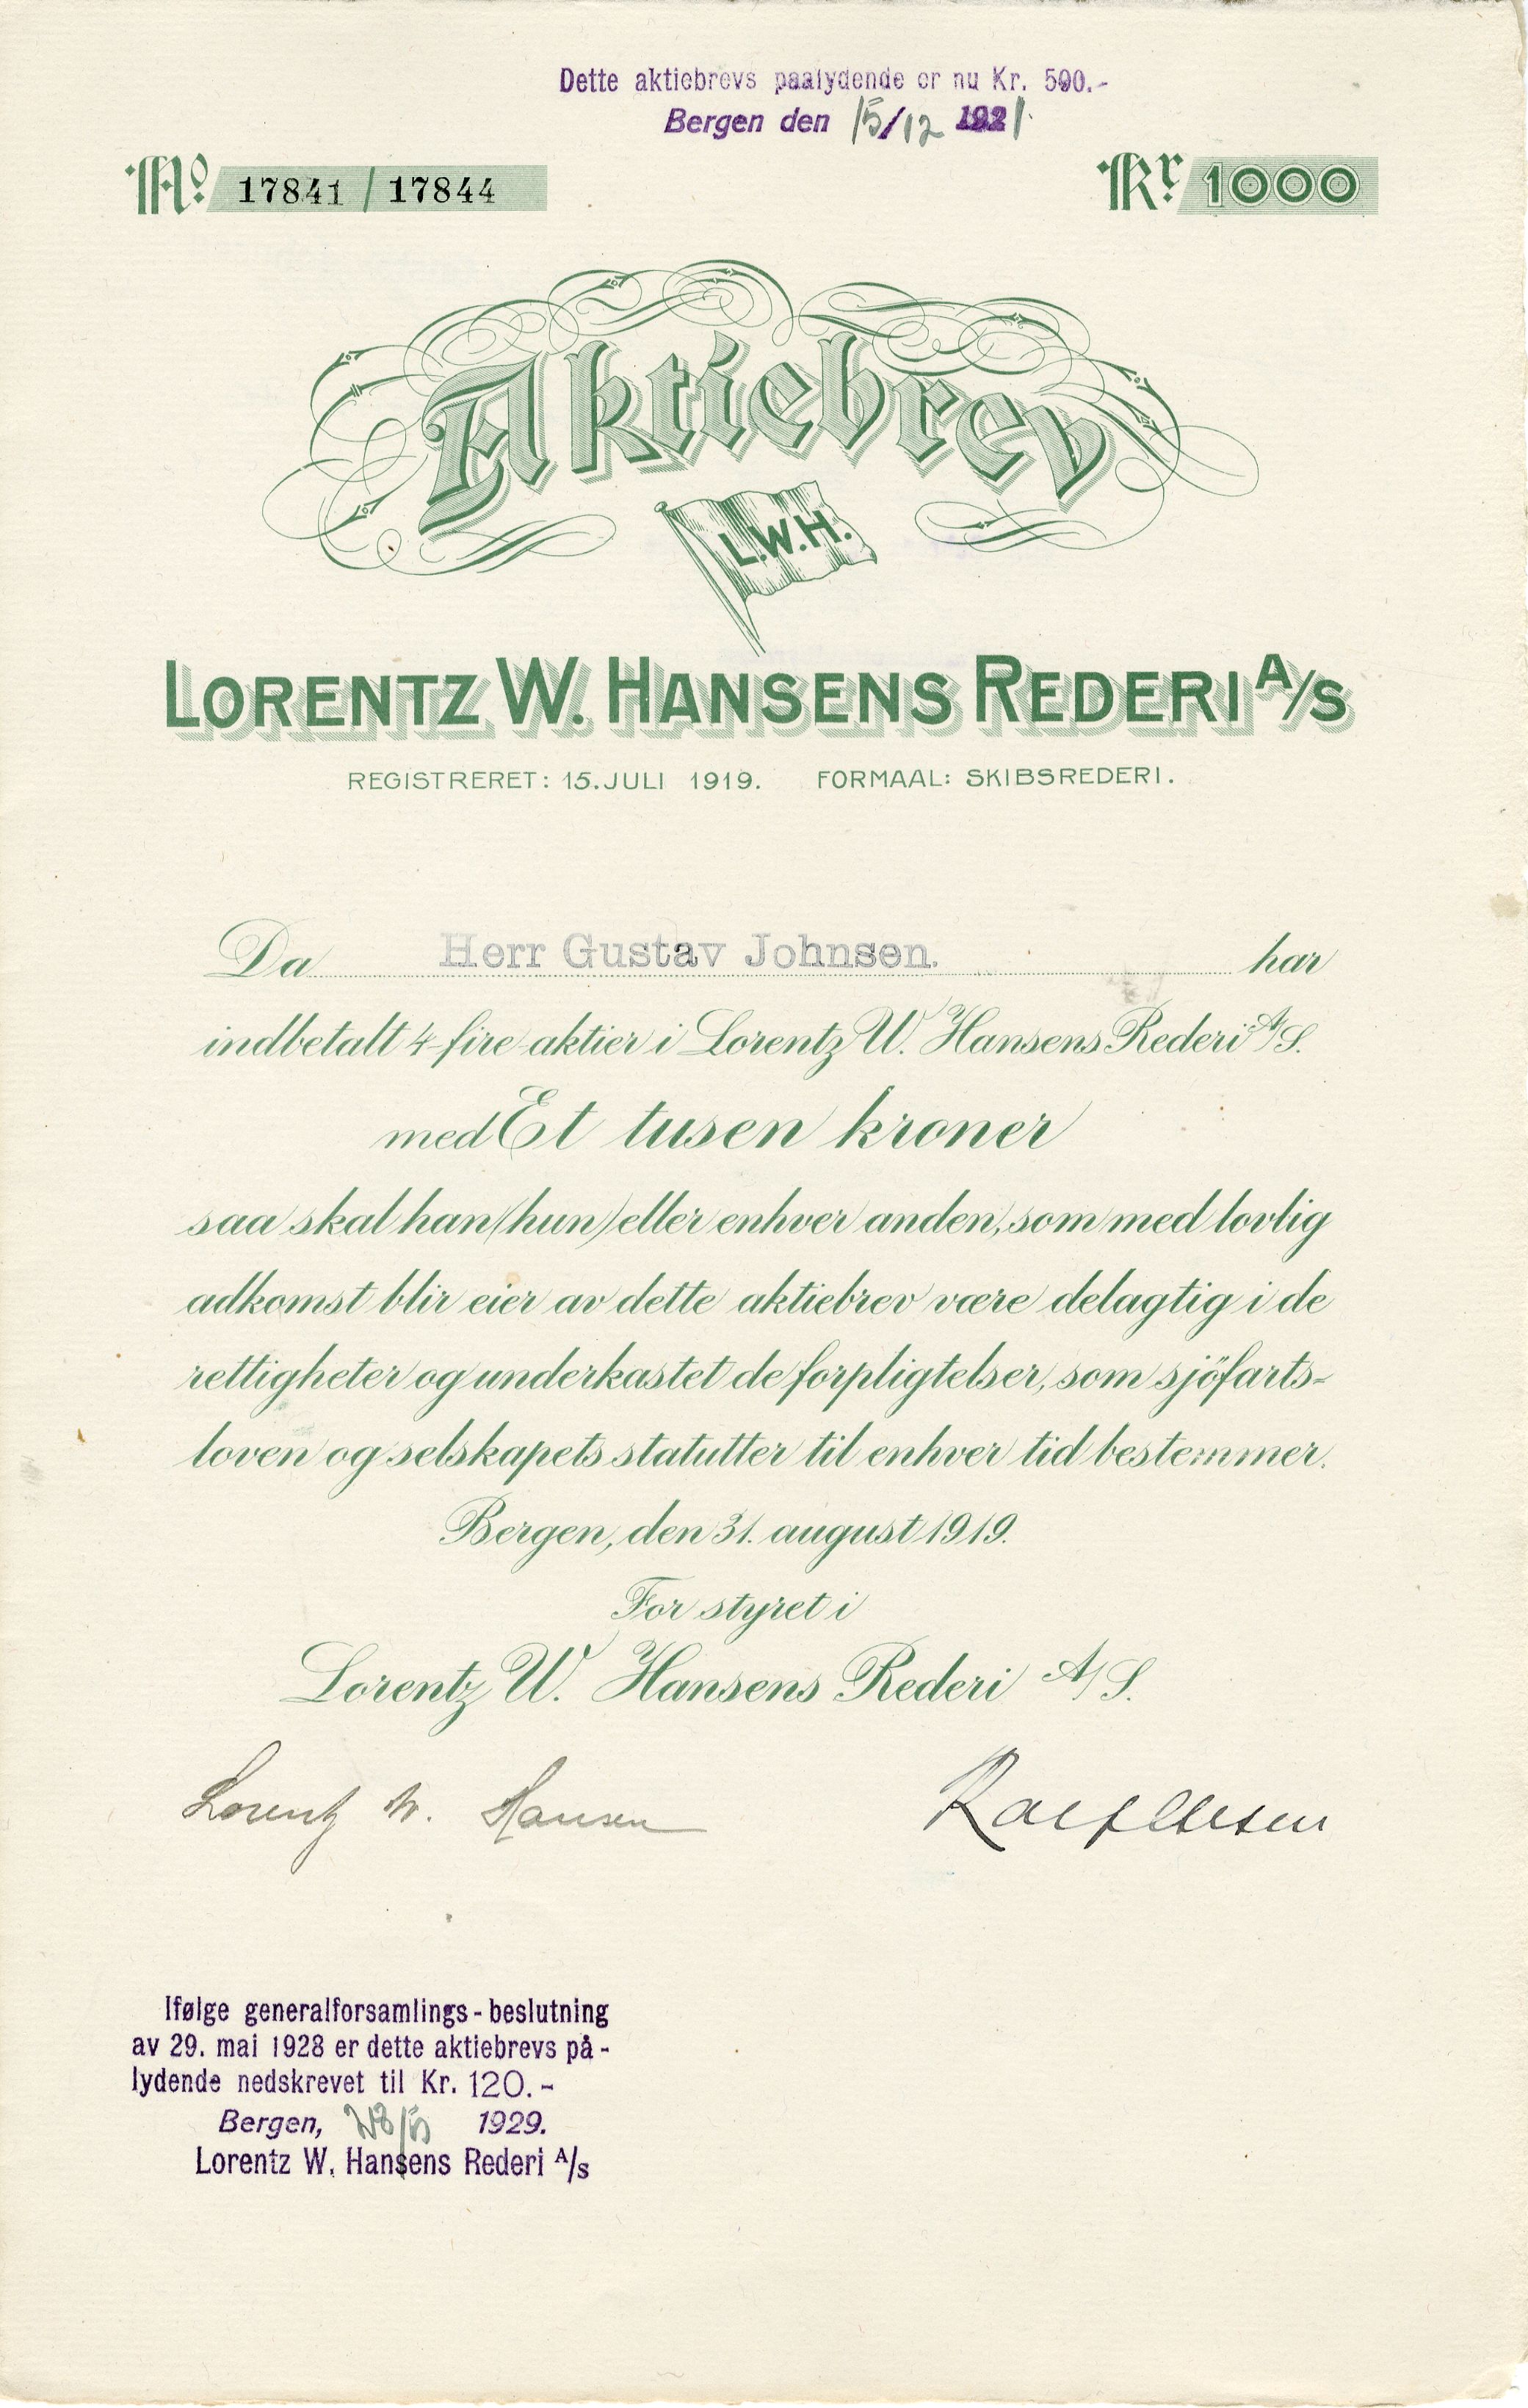 Dette aktiebrevs paalydende er nu Kr. 500.-
Bergen den 15/12 1921.
No. 17841 / 17844
Kr. 1000
Aktiebrev
L.W.H.
LORENTZ W. HANSENS REDERI A/S
REGISTRERET: 15. JULI 1919. FORMAAL: SKIBSREDERI.
Da Herr Gustav Johnsen. har
indbetalt 4-fire aktier i Lorentz W. Hansens Rederi A/S.
med Et tusen kroner
saa skal han (hun) eller enhver anden, som med lovlig
adkomst blir eier av dette aktiebrev være delagtig i de
rettigheter og underkastet de forpligtelser, som sjöfarts-
loven og selskapets statutter til enhver tid bestemmer.
Bergen, den 31. august 1919.
For styret i
Lorentz W. Hansens Rederi A/S.
Lorentz W. Hansen
Ifølge generalforsamlings-beslutning
av 29. mai 1928 er dette aktiebrevs på-
lydende nedskrevet til Kr. 120.-
Bergen, 1929.
Lorentz W. Hansens Rederi A/S